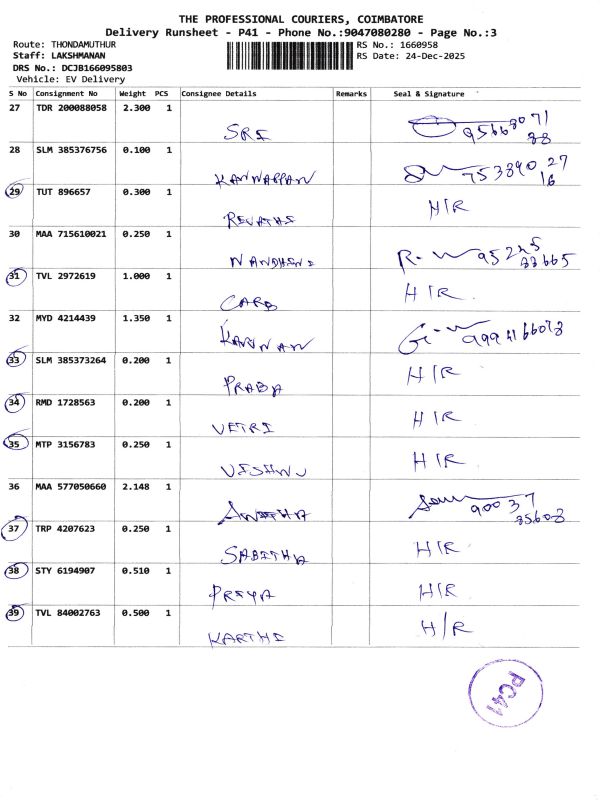 THE PROFESSIONAL COURIERS, COIMBATORE
Delivery Runsheet - P41 - Phone No.:9047080280 - Page No.:3
Route: THONDAMUTHUR RS No.: 1660958
Staff: LAKSHMANAN RS Date: 24-Dec-2025
DRS No.: DCJB166095803
Vehicle: EV Delivery
S No Consignment No Weight PCS Consignee Details Remarks Seal & Signature
27 TDR 200088058 2.300 1
SRI 95668071
88
28 SLM 385376756 0.100 1
KANNAPPAN 75389027
16
29 TUT 896657 0.300 1
REVATHI H/R
30 MAA 715610021 0.250 1
NANDHINI 95245
88665
31 TVL 2972619 1.000 1
CARD H/R
32 MYD 4214439 1.350 1
KANNAN
33 SLM 385373264 0.200 1
PRABA H/R
34 RMD 1728563 0.200 1
VETRI H/R
35 MTP 3156783 0.250 1
VISHNU H/R
36 MAA 577050660 2.148 1
ANITHA 90037
85608
37 TRP 4207623 0.250 1
SABITHA H/R
38 STY 6194907 0.510 1
PRIYA H/R
39 TVL 84002763 0.500 1
KARTHI H/R
PC41